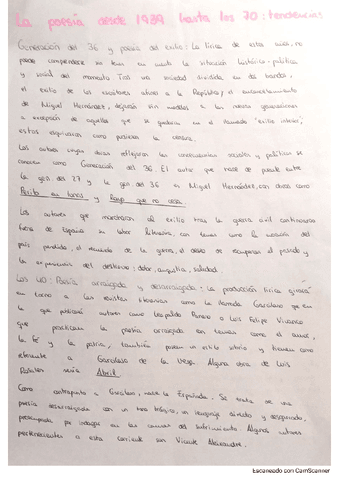 La poesía desde 1939 hasta los 70: tendencias
Generación del 36 y poesía del exilio: La lírica de estos años, no
puede comprenderse sin tener en cuenta la situación histórico-política
y social del momento. Tras una sociedad dividida en dos bandos,
el exilio de los escritores afines a la República y el encarcelamiento
de Miguel Hernández, dejaron sin modelos a las nuevas generaciones
a excepción de aquellos que se quedaron en el llamado "exilio interior",
estos esquivaron como pudieron la censura.
Los autores cuyas obras reflejaron las consecuencias sociales y políticas se
conocen como Generación del 36. El autor que nace de puente entre
la gen. del 27 y la gen. del 36 es Miguel Hernández, con obras como
Perito en lunas y Rayo que no cesa.
Los autores que marcharon al exilio tras la guerra civil continuaron
fuera de España su labor literaria, con temas como la evocación del
país perdido, el recuerdo de la guerra, el deseo de recuperar el pasado y
la experiencia del destierro: dolor, angustia, soledad.
Los 40: Poesía arraigada y desarraigada: La producción lírica
en torno a las revistas literarias como la llamada Garcilaso que en
la que publicaron autores como Leopoldo Panero o Luis Felipe Vivanco
que practicaron la poesía arraigada con temas como el amor,
la fe y la patria, también poseen un estilo vitorio y tienen como
referente a Garcilaso de la Vega. Alguna obra de Luis
Rosales sería Abril.
Como contrapunto a Garcilaso, nace la Espadaña. Se trata de una
poesía desarraigada con un tono trágico, un lenguaje directo y desgarrado,
preocupada por indagar en las causas del sufrimiento. Algunos autores
pertenecientes a esta corriente son Vicente Aleixandre,
Escaneado con CamScanner